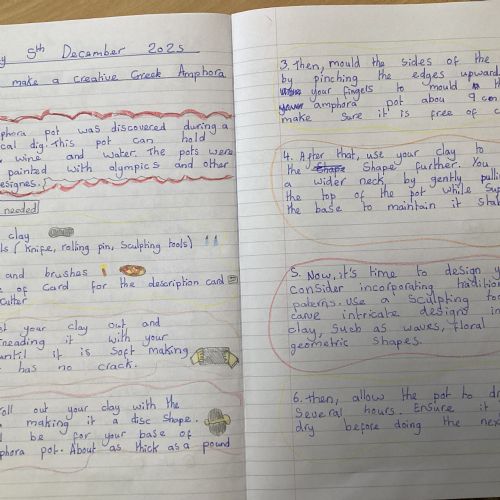 5th December 2025
make a creative Greek Amphora
pot was discovered during a
dig. This pot can hold
wine and water. The pots were
painted with olympics and other
needed
clay
(knife, rolling pin, sculpting tools)
and brushes
of card for the description card
your clay out and
kneading it with your
until it is soft making
has no crack.
out your clay with the
making it a disc shape.
be for your base of
pot. About as thick as a pound
3. Then, mould the sides of the
by pinching the edges upward
your fingels to mould
amphora pot abou 9 cm
make sure it is free of
4. After that, use your clay to
the shape further. You
a wider neck by gently
the top of the pot while
the base to maintain it
5. Now, it's time to design
consider incorporating
paterns. use a sculpting
carve intricate designs
clay, such as waves, floral
geometric shapes.
6. then, allow the pot to
several hours. Ensure it
dry before doing the